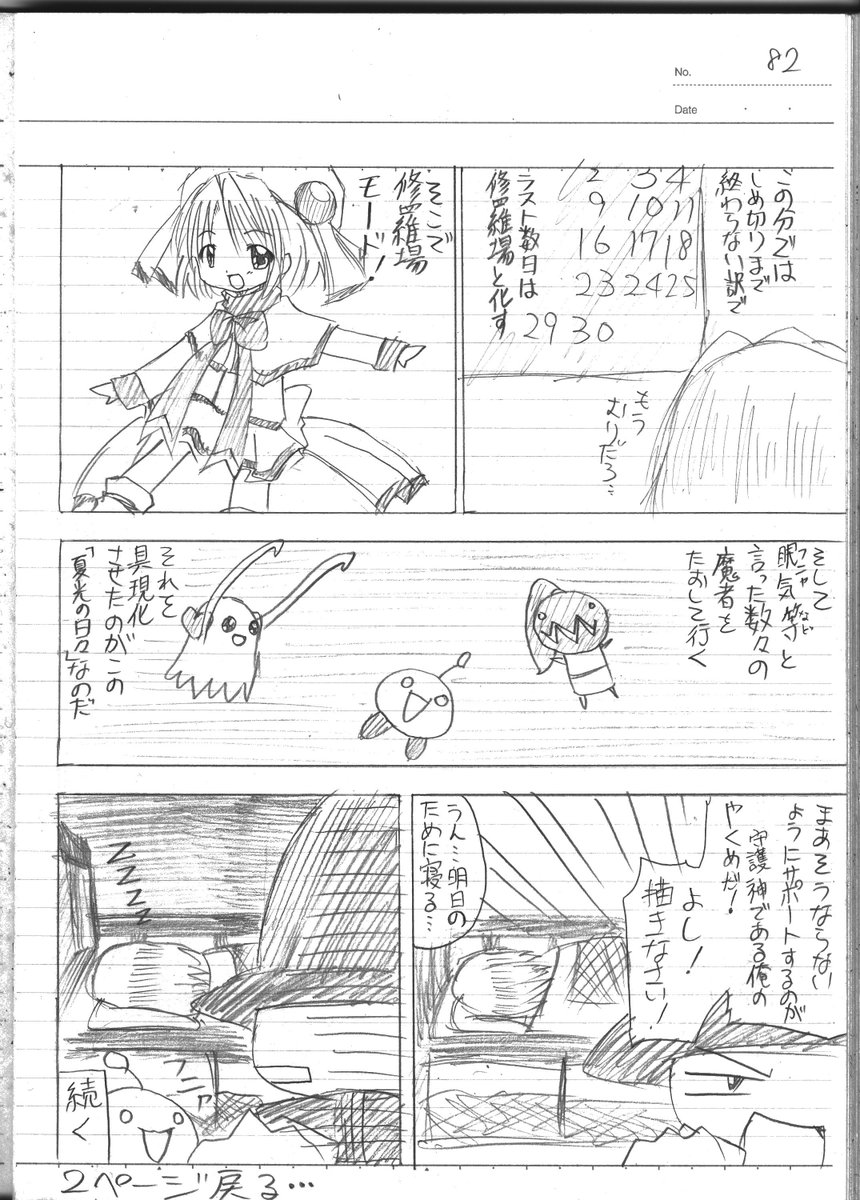 No. 82
Date
この分では
しめ切りまで
終わらない訳で
2 3 4
9 10 11
16 17 18
23 24 25
29 30
ラスト数日は
修羅場と化す
もう
むりだろ…
そこで
修羅場
モード!
そして
眠気等と
フニャ など
言った数々の
魔者を
たおして行く
それを
具現化
させたのがこの
「夏光の日々」なのだ
まあそうならない
ようにサポートするのが
守護神である俺の
やくめだ!
よし!
描きなさい!
うん…明日の
ために寝る…
ZZZZ
フニャ
続く
2ページ戻る…